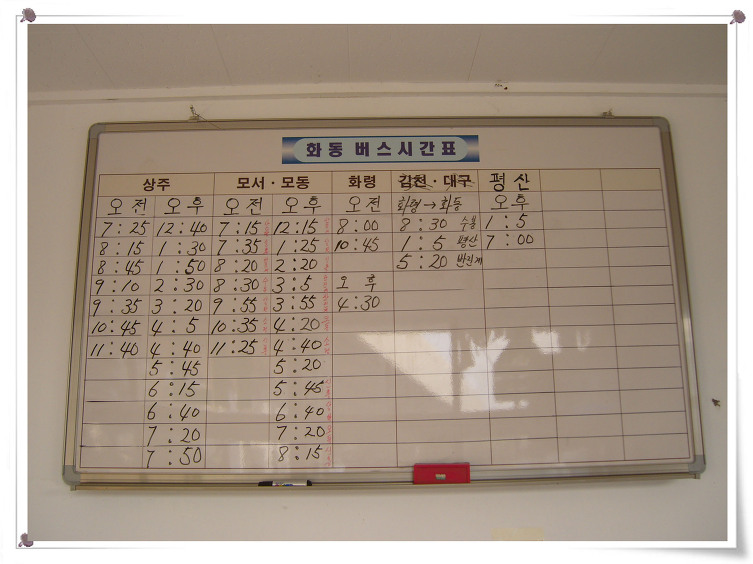 화동 버스시간표
상주 모서·모동 화령 김천·대구 평산
오전 오후 오전 오후 오전 화령→화동 오후
7:25 12:40 7:15 12:15 8:00 8:30 수봉 1:5
8:15 1:30 7:35 1:25 10:45 1:5 평산 7:00
8:45 1:50 8:20 2:20 5:20 반곡계
9:10 2:30 8:30 3:5 오후
9:35 3:20 9:55 3:55 4:30
10:45 4:5 10:35 4:20
11:40 4:40 11:25 4:40
5:45 5:20
6:15 5:45
6:40 6:40
7:20 7:20
7:50 8:15